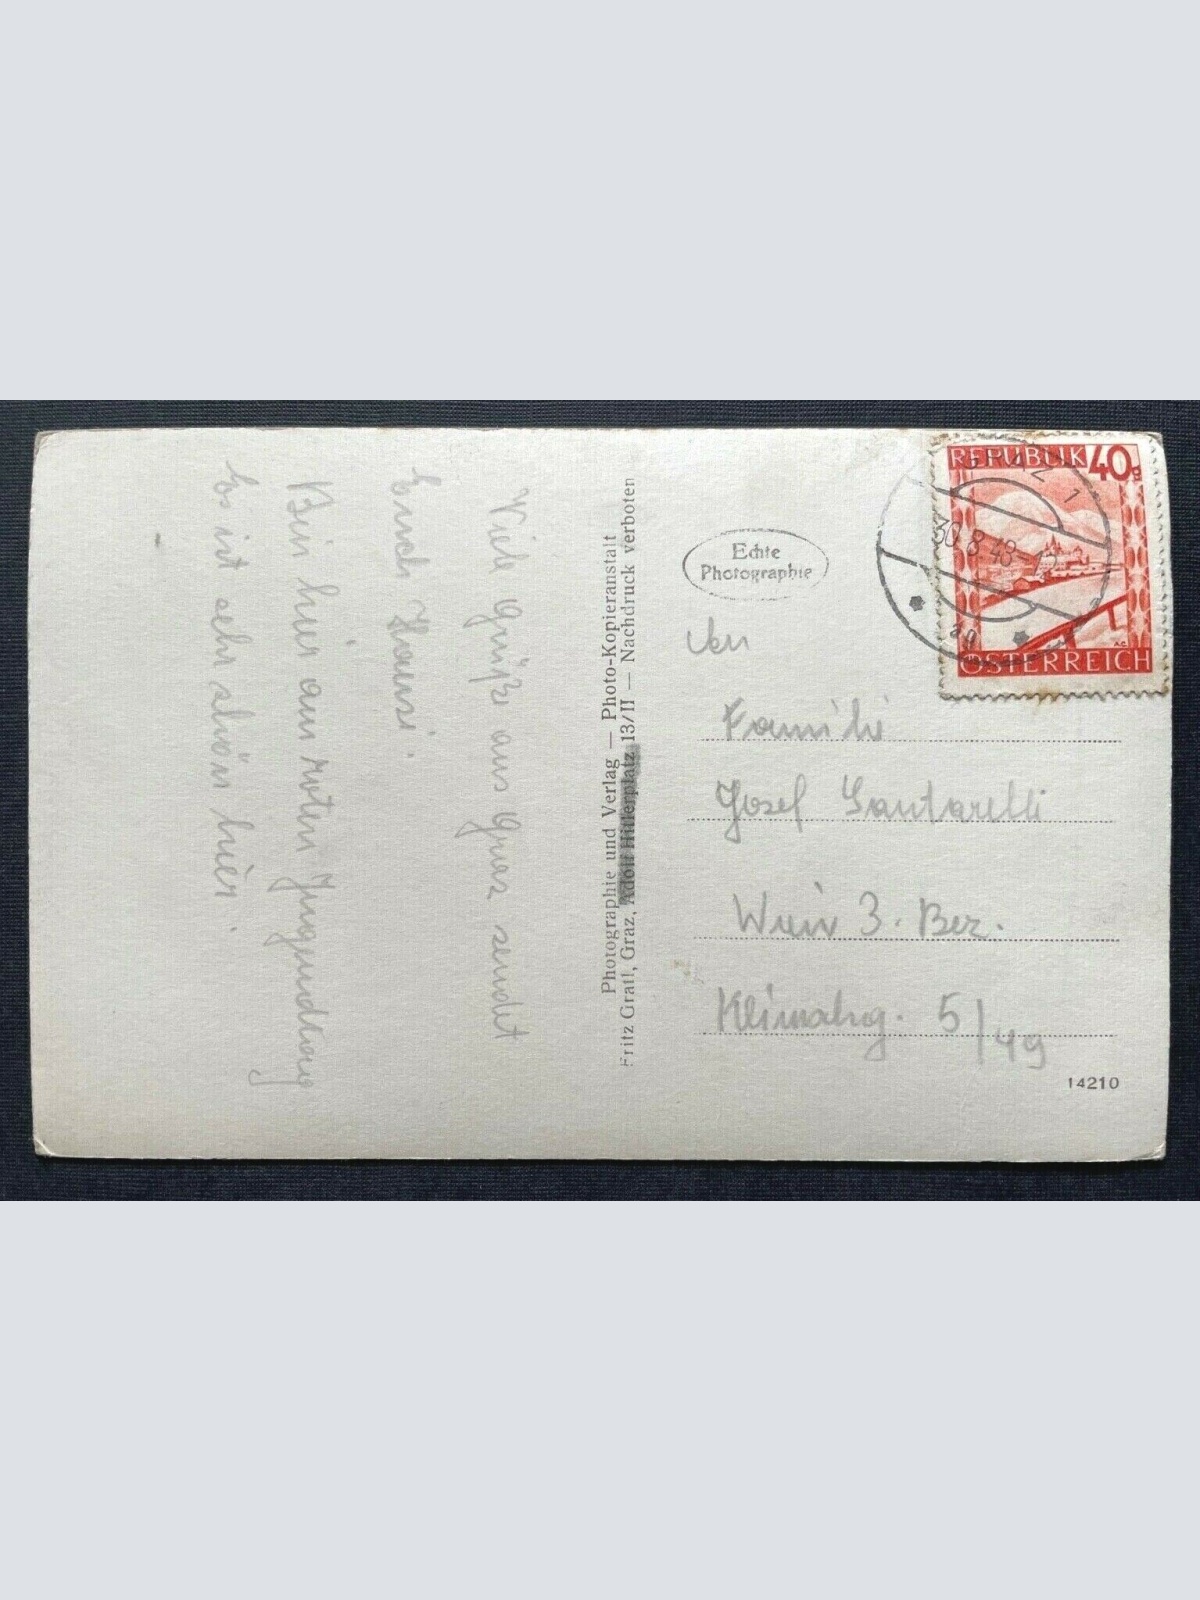 Viele Grüße aus Graz sendet
Euch Hansi.
Bin hier am roten Jugendtag
Es ist sehr schön hier.
Photographie und Verlag — Photo-Kopieranstalt
Fritz Gratl, Graz, Adolf Hitlerplatz 13/II — Nachdruck verboten
Echte
Photographie
REPUBLIK 40g
ÖSTERREICH
GRAZ 1
30.8.48-12
An
Familie
Josef Santarelli
Wien 3. Bez.
5/49
14210